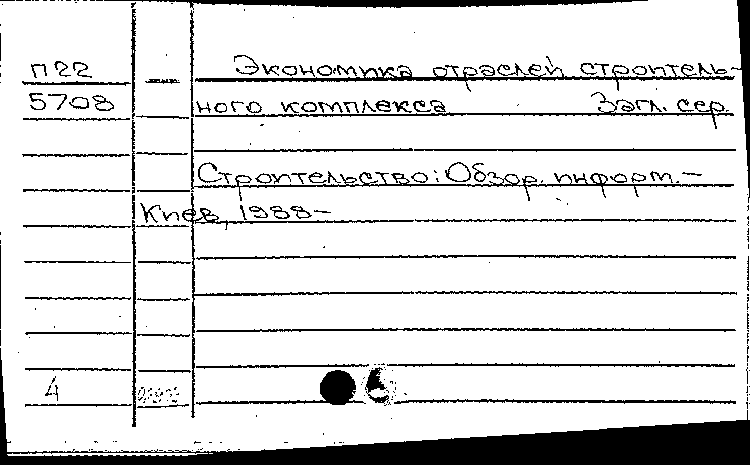 П22 Экономика отраслей строитель-
5708 ного комплекса Загл. сер.
Строительство: Обзор. информ. -
Киев, 1988-
4